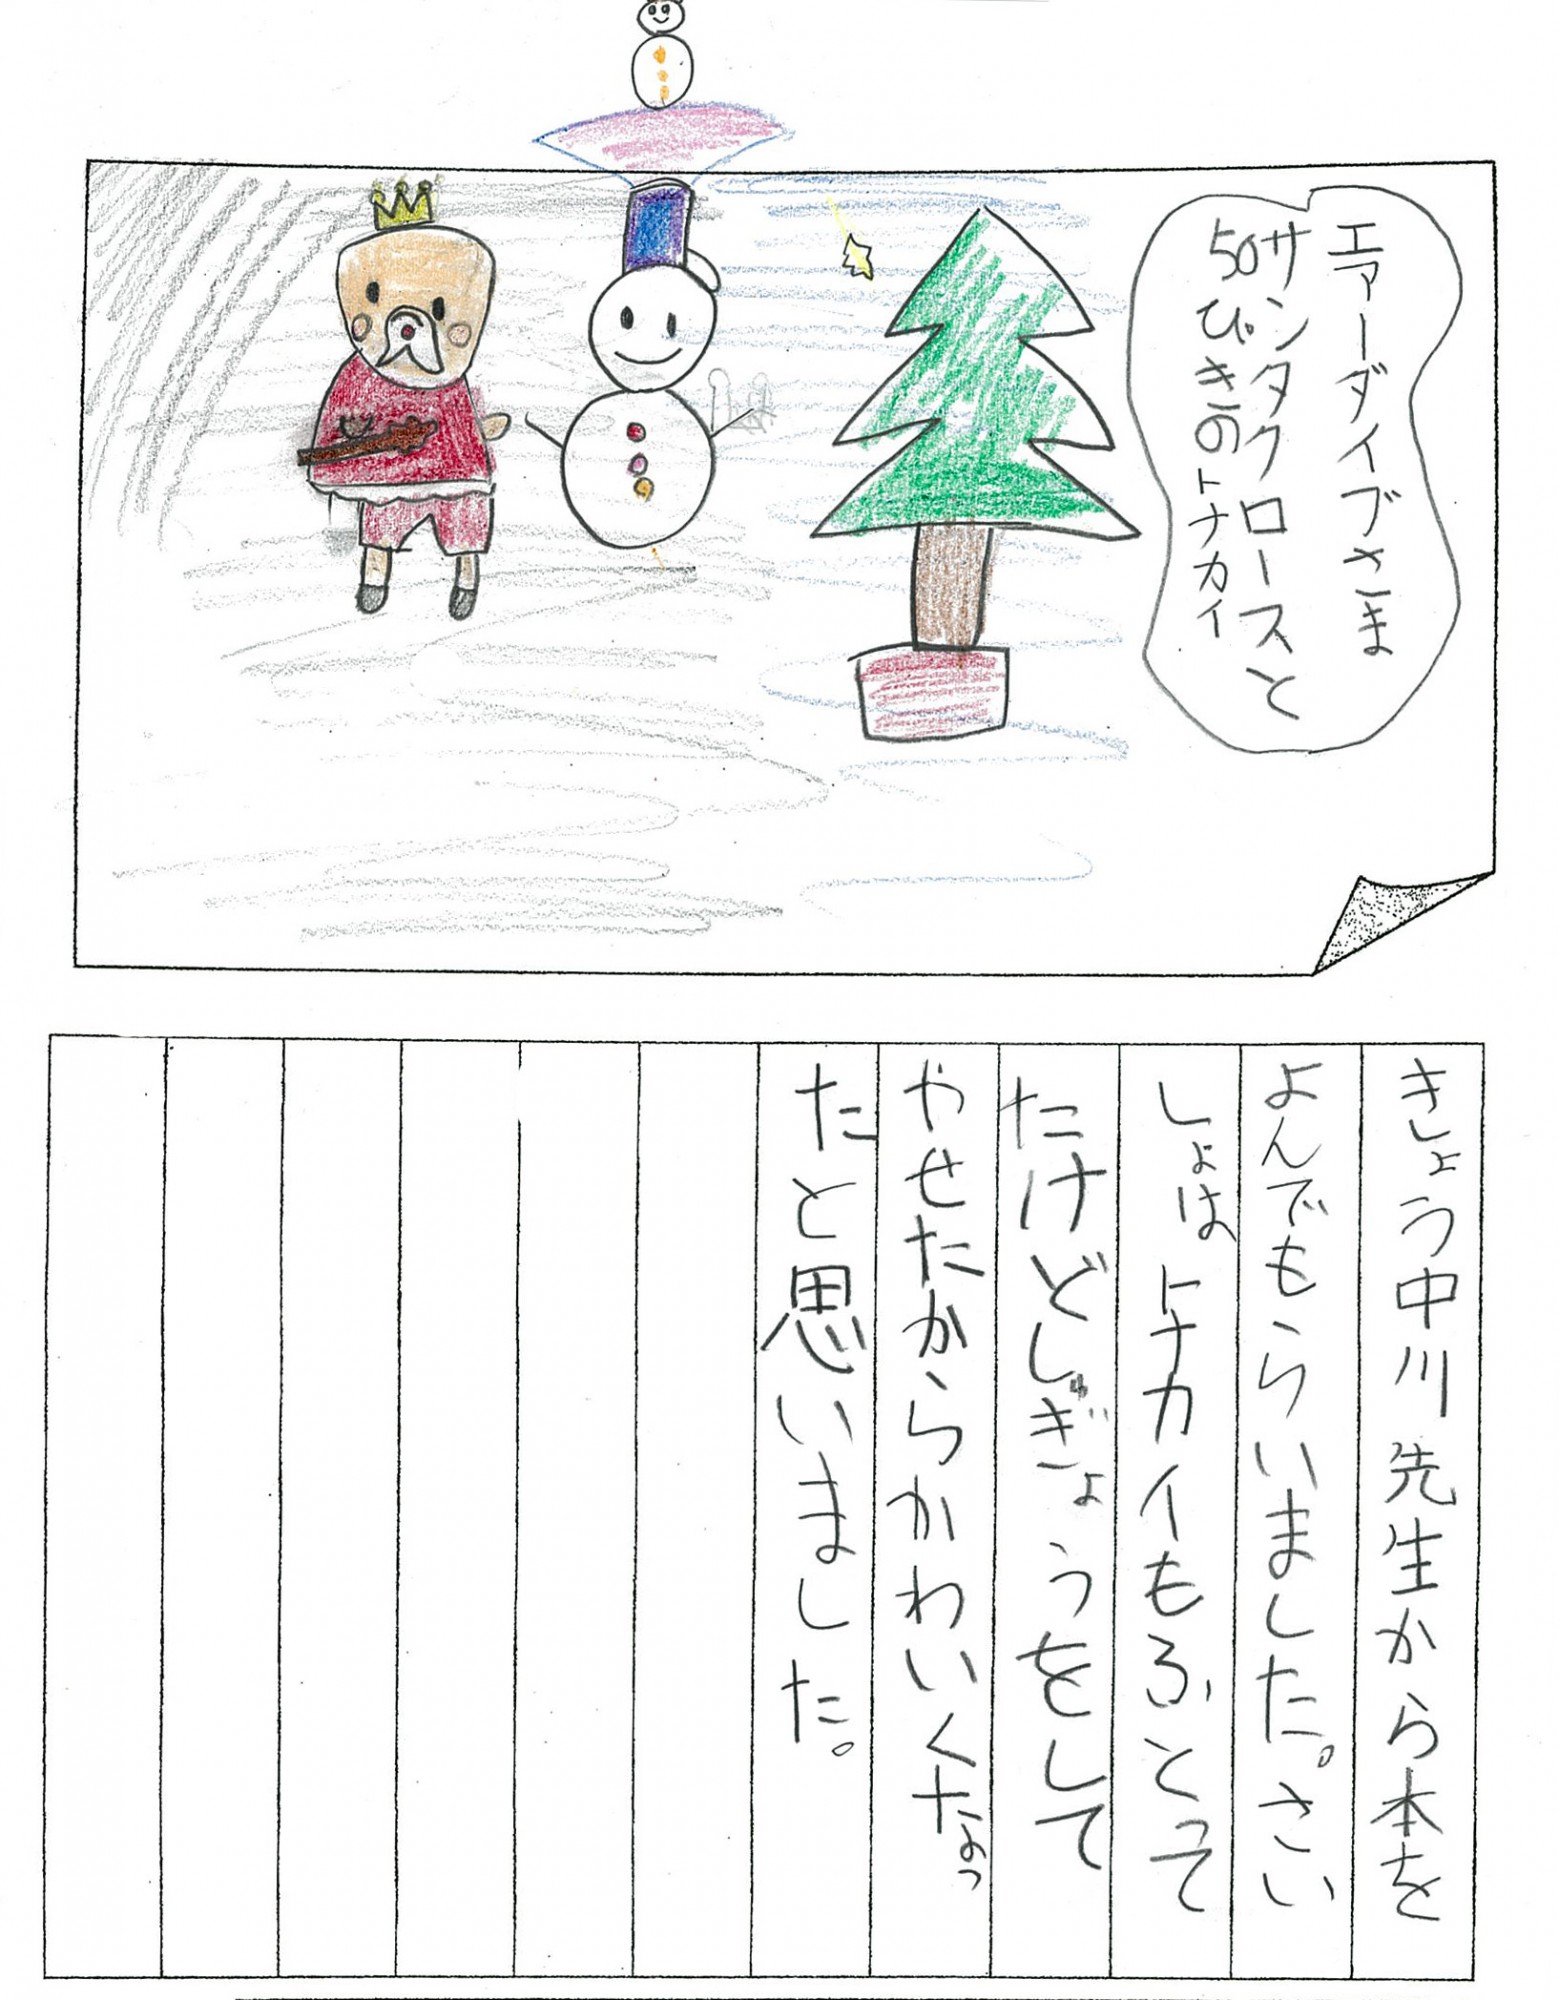 エアーダイブさま
サンタクロースと
50ぴきのトナカイ
きょう中川先生から本を
よんでもらいました。さい
しょはトナカイもふとって
たけどしゅぎょうをして
やせたからかわいくなっ
たと思いました。